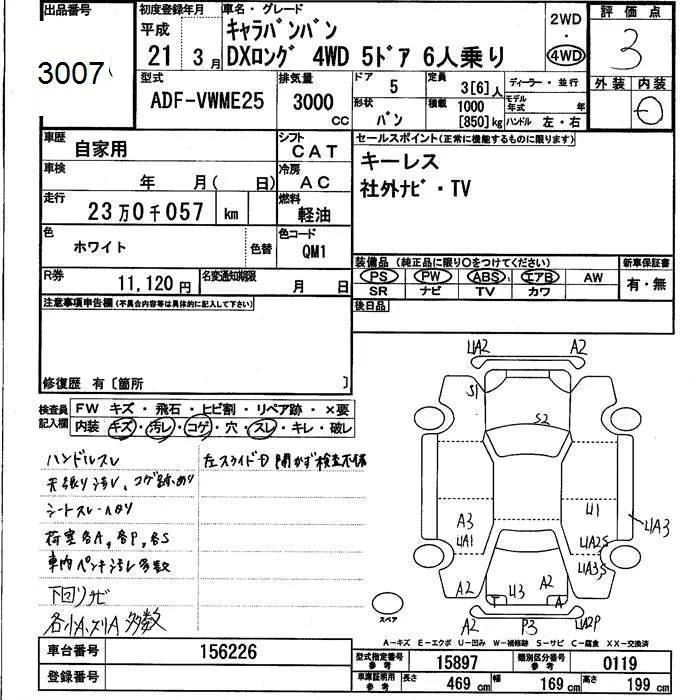 出品番号 初度登録年月 車名・グレード 評価点
平成 キャラバンバン 2WD
21 3月 DXロング 4WD 5ドア 6人乗り 4WD 3
3007
型式 排気量 ドア 5 定員 3[6]人 ディーラー・並行 外装 内装
ADF-VWME25 3000 CC 形状 バン 積載 1000 [850]kg モデル年式 年 ハンドル 左・右
車歴 自家用 シフト CAT セールスポイント(正常に機能するものに限ります)
車検 年 月( 日) 冷房 AC キーレス
走行 23万0千057 km 燃料 軽油 社外ナビ・TV
色 ホワイト 色替 色コード QM1
装備品(純正品に限り○をつけてください) 新車保証書
R券 11,120円 名変通知期限 月 日 PS PW ABS エアB AW 有・無
SR ナビ TV カワ
注意事項申告欄(不具合内容等は具体的に記入して下さい) 後日品
修復歴 有〔箇所 〕
検査員記入欄 FW キズ・飛石・ヒビ割・リペア跡・×要
内装 キズ・汚レ・コゲ・穴・スレ・キレ・破レ
ハンドルスレ 左スライドD開かず検査不備
天張り汚レ、コゲ跡あり
シートスレ
荷室各A,各P,各S
車内ペンキ汚レ多数
下回りサビ
各小A,スリA多数
UA2 A2
S1
S2
A3
UA1
U1
UA2S
UA3S
UA3
A2 U3 A2
T A
A2 P3 UA2P
スペア
A-キズ E-エクボ U-凹み W-補修跡 S-サビ C-腐食 XX-交換済
車台番号 156226 型式指定番号 参考 15897 類別区分番号 参考 0119
登録番号 車庫証明用 参考 長さ 469 cm 幅 169 cm 高さ 199 cm